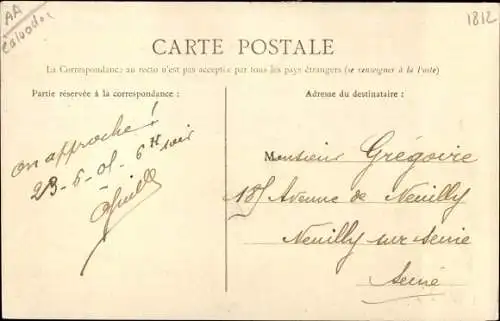 AA
Calvados
1812
CARTE POSTALE
La Correspondance au recto n'est pas acceptée par tous les pays étrangers (se renseigner à la Poste)
Partie réservée à la correspondance :
Adresse du destinataire :
on approche !
23-6-05 6H soir
Monsieur Grégoire
185 Avenue de Neuilly
Neuilly sur Seine
Seine